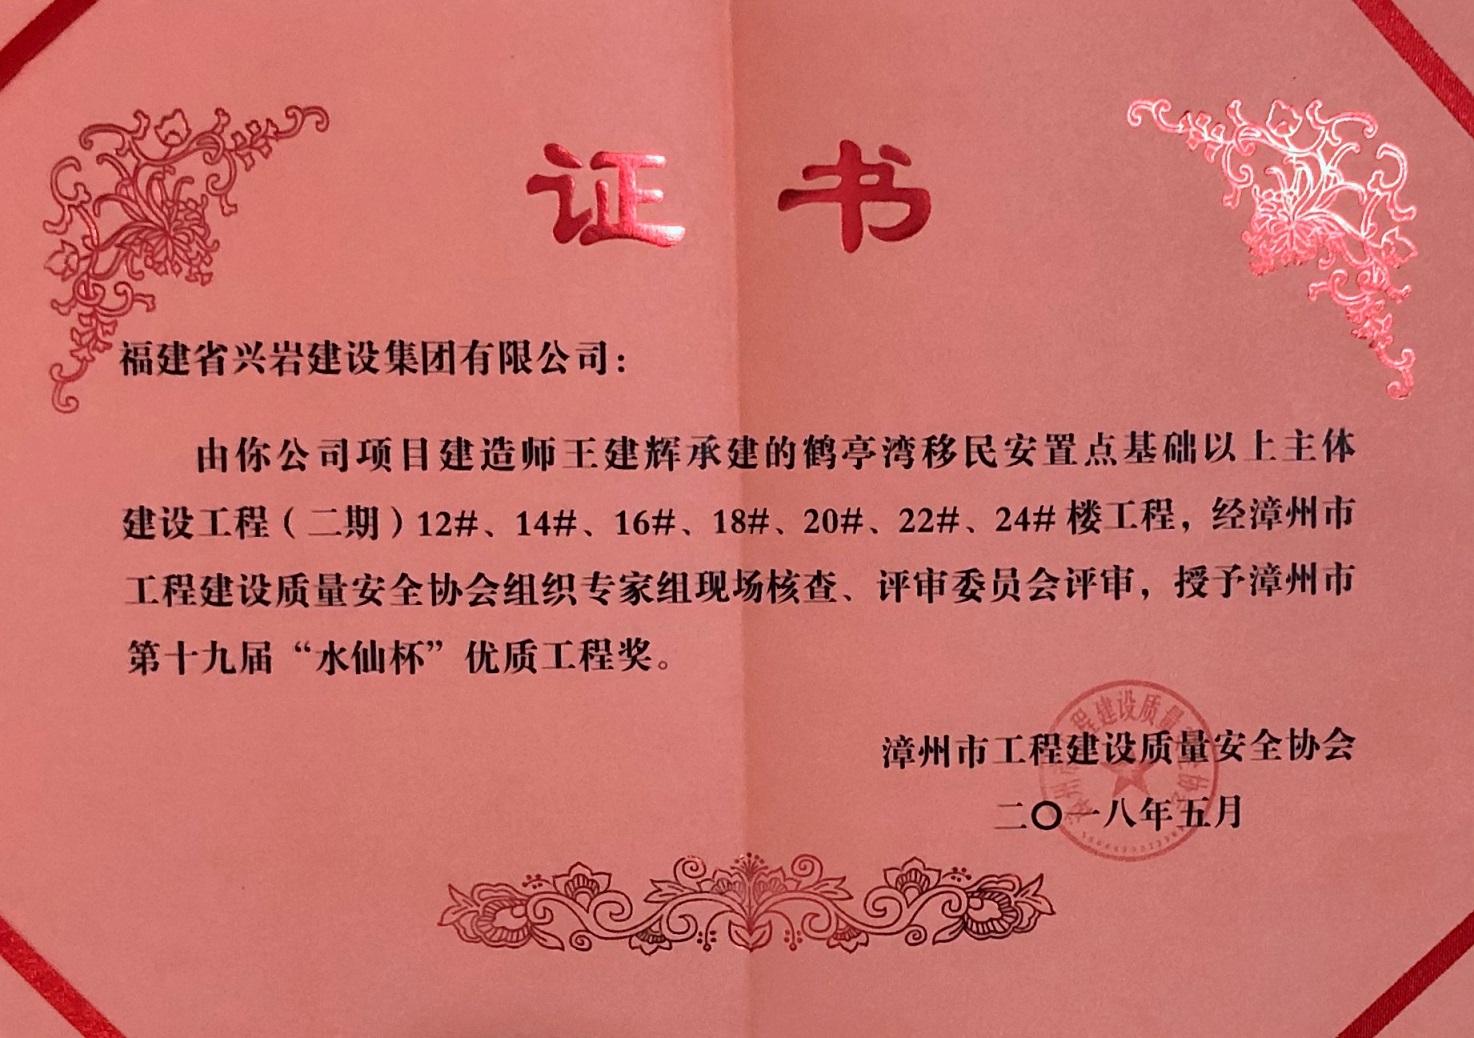 证书
福建省兴岩建设集团有限公司：
由你公司项目建造师王建辉承建的鹤亭湾移民安置点基础以上主体
建设工程（二期）12#、14#、16#、18#、20#、22#、24#楼工程，经漳州市
工程建设质量安全协会组织专家组现场核查、评审委员会评审，授予漳州市
第十九届“水仙杯”优质工程奖。
漳州市工程建设质量安全协会
二〇一八年五月